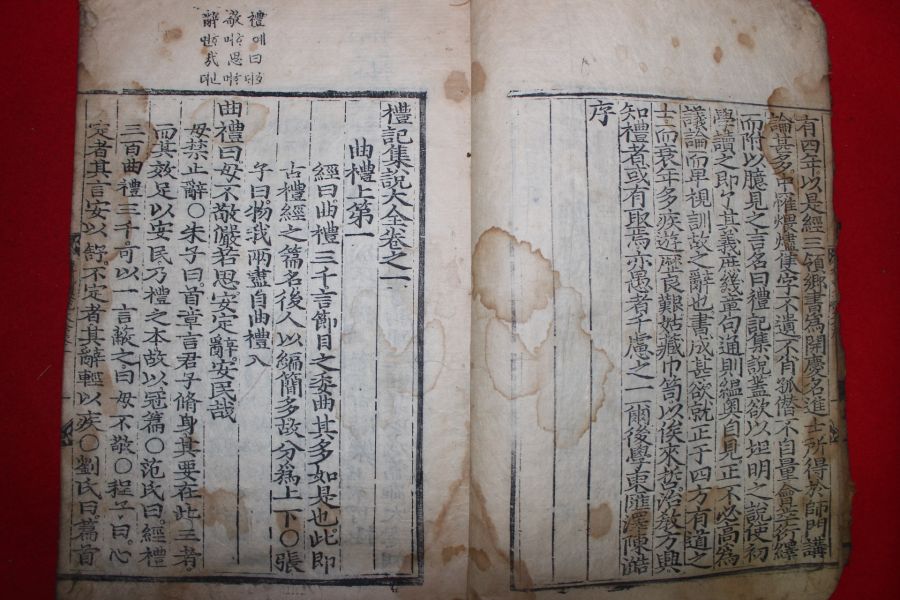 有四年以是經三領鄉書為開慶名進士所得於師門講
論甚多中罹煨燼隻字不遺不肖孤僭不自量會萃衍繹
而附以臆見之言名曰禮記集說蓋欲以坦明之說使初
學讀之即了其義庶幾章句通則縕奧自見正不必高為
議論而卑視訓故之辭也書成甚欲就正于四方有道之
士而衰年多疾遊歷良艱姑藏巾笥以俟來哲治敎方興
知禮者或有取焉亦愚者千慮之一爾後學東匯澤陳澔
序
禮에曰
敬思
辭哉
禮記集說大全卷之一
曲禮上第一
經曰曲禮三千言節目之委曲其多如是也此即
古禮經之篇名後人以編簡多故分爲上下○張
子曰物我兩盡自曲禮入
曲禮曰毋不敬儼若思安定辭安民哉
毋禁止辭○朱子曰首章言君子脩身其要在此三者
而其效足以安民乃禮之本故以冠篇○范氏曰經禮
三百曲禮三千可以一言蔽之曰毋不敬○程子曰心
定者其言安以舒不定者其辭輕以疾○劉氏曰篇首